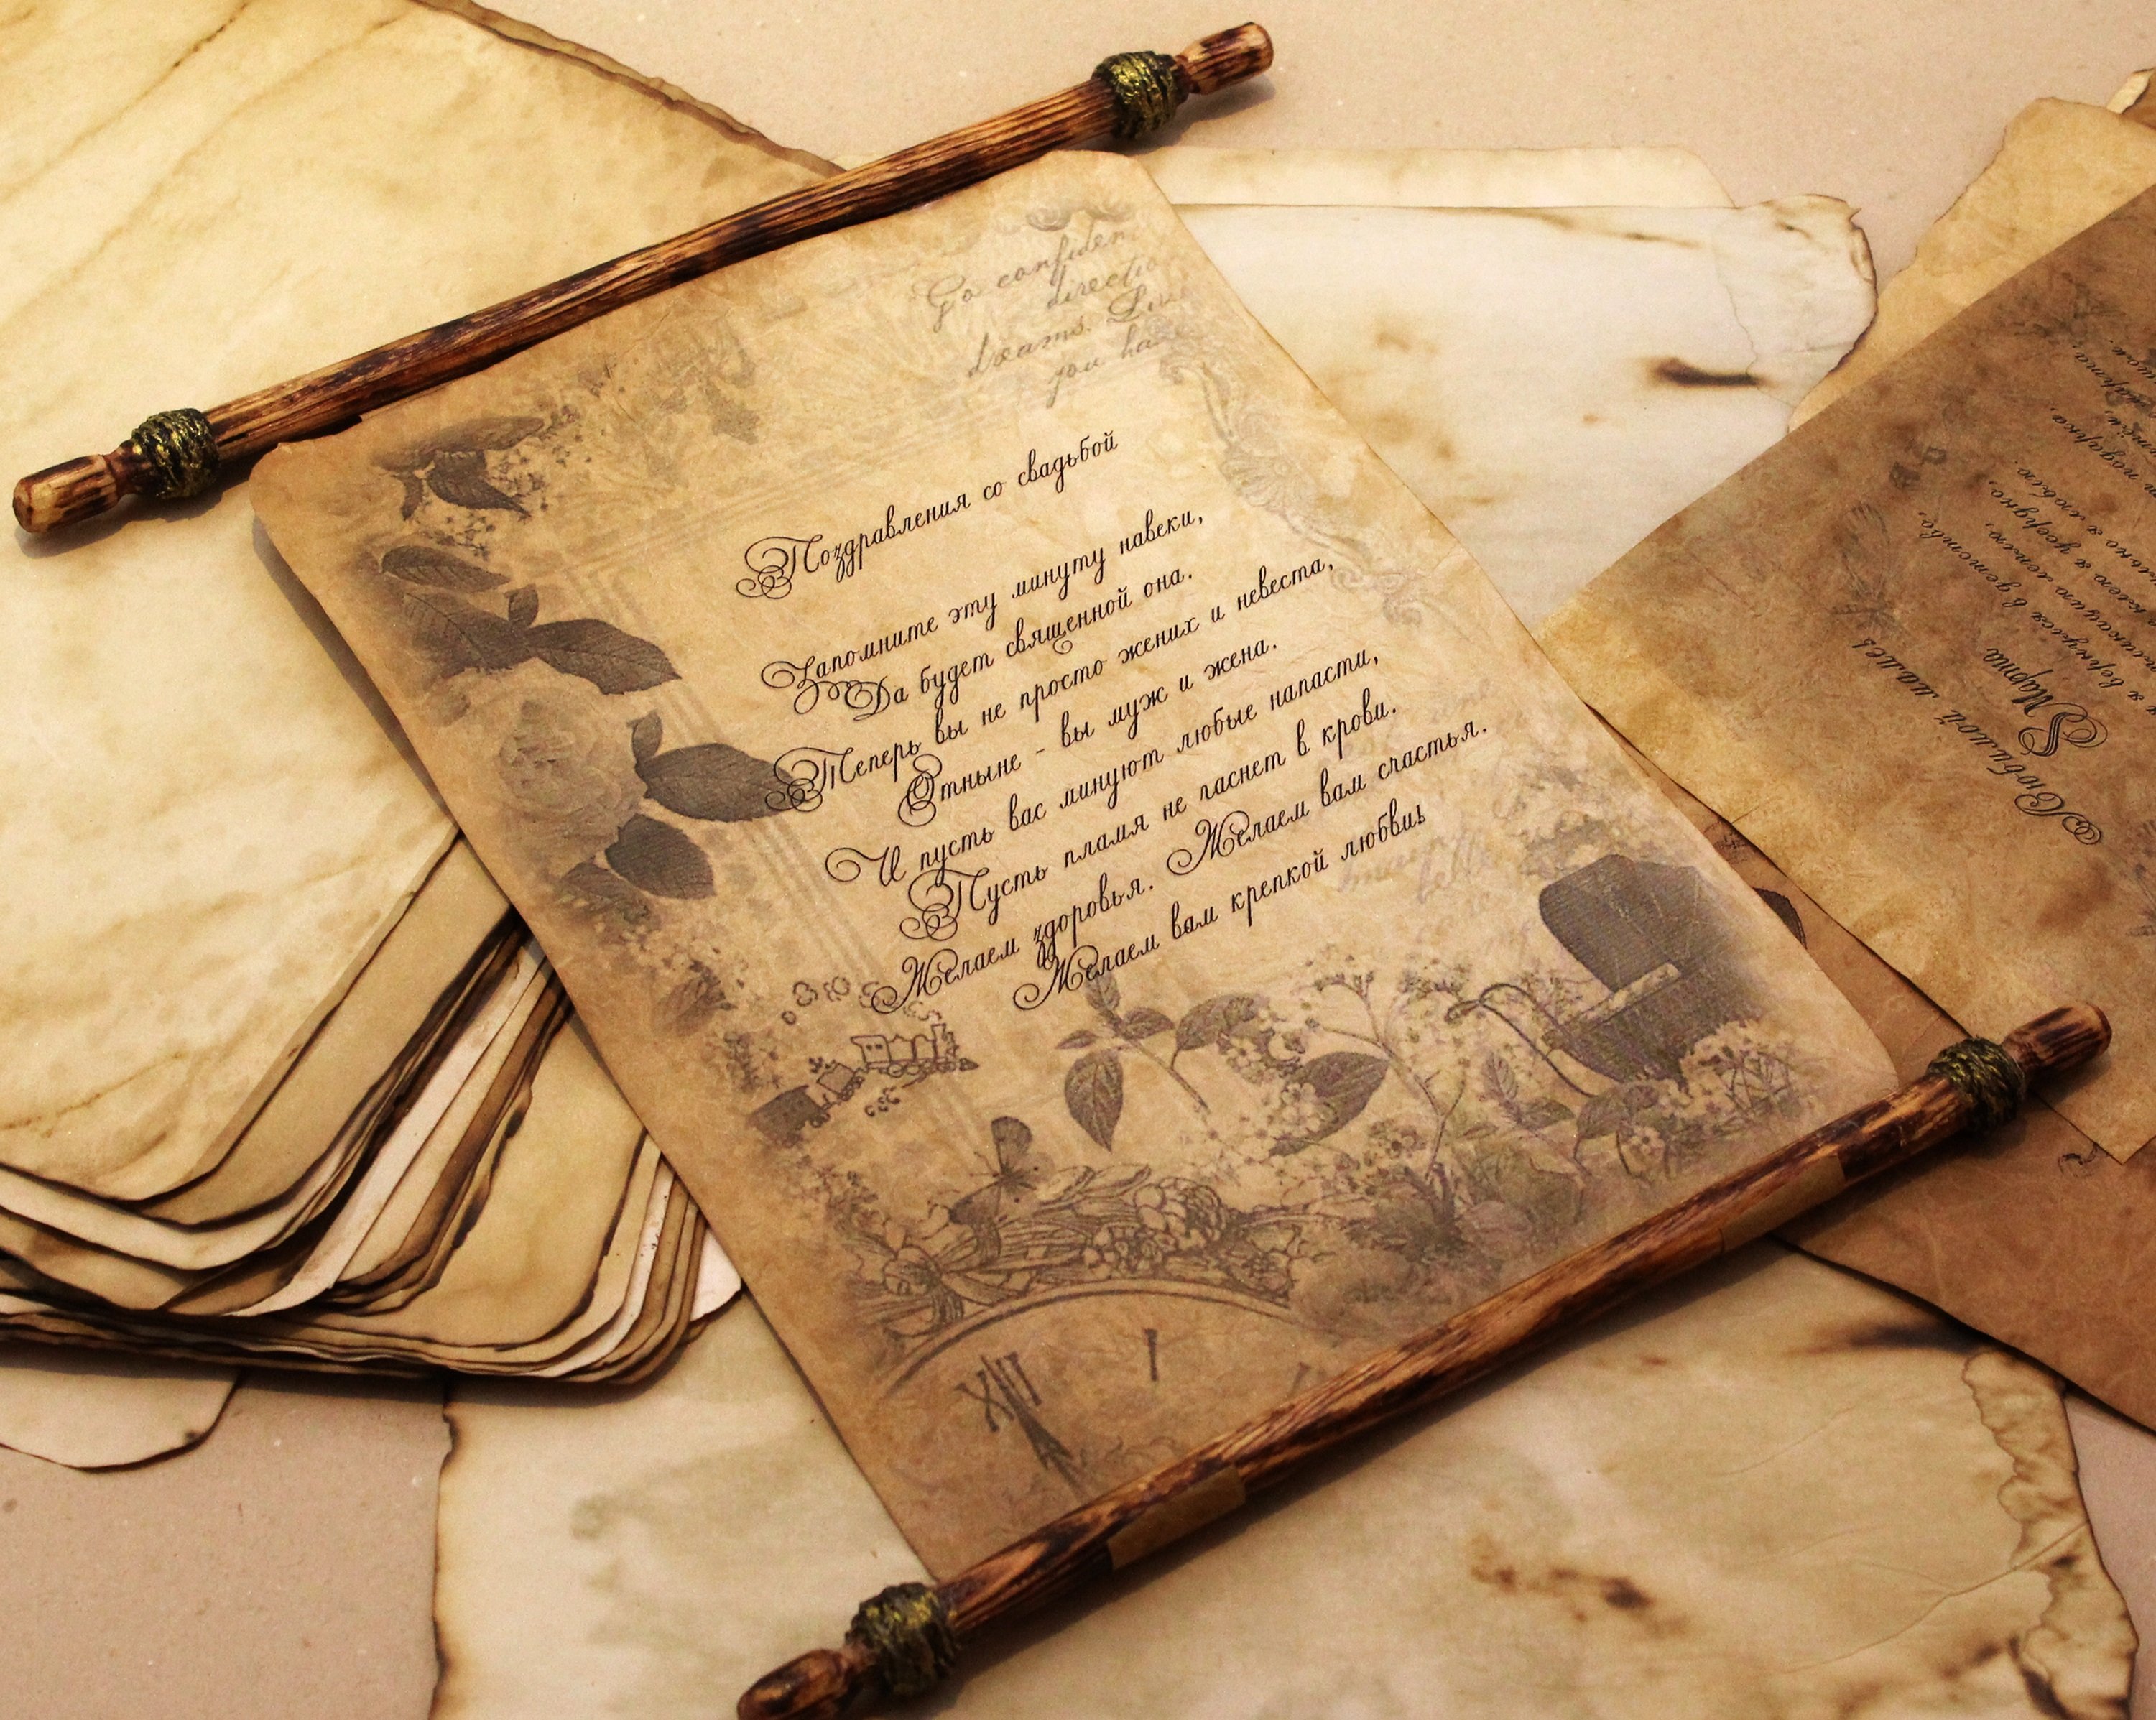 Go confiden
directio
dreams. Live
you ha
Поздравления со свадьбой
Запомните эту минуту навеки,
Да будет священной она.
Теперь вы не просто жених и невеста,
Отныне - вы муж и жена.
И пусть вас минуют любые напасти,
Пусть пламя не гаснет в крови.
Желаем здоровья. Желаем вам счастья.
Желаем вам крепкой любви!
XII I
Любимой маме!
8 Марта
я вернулся в детство,